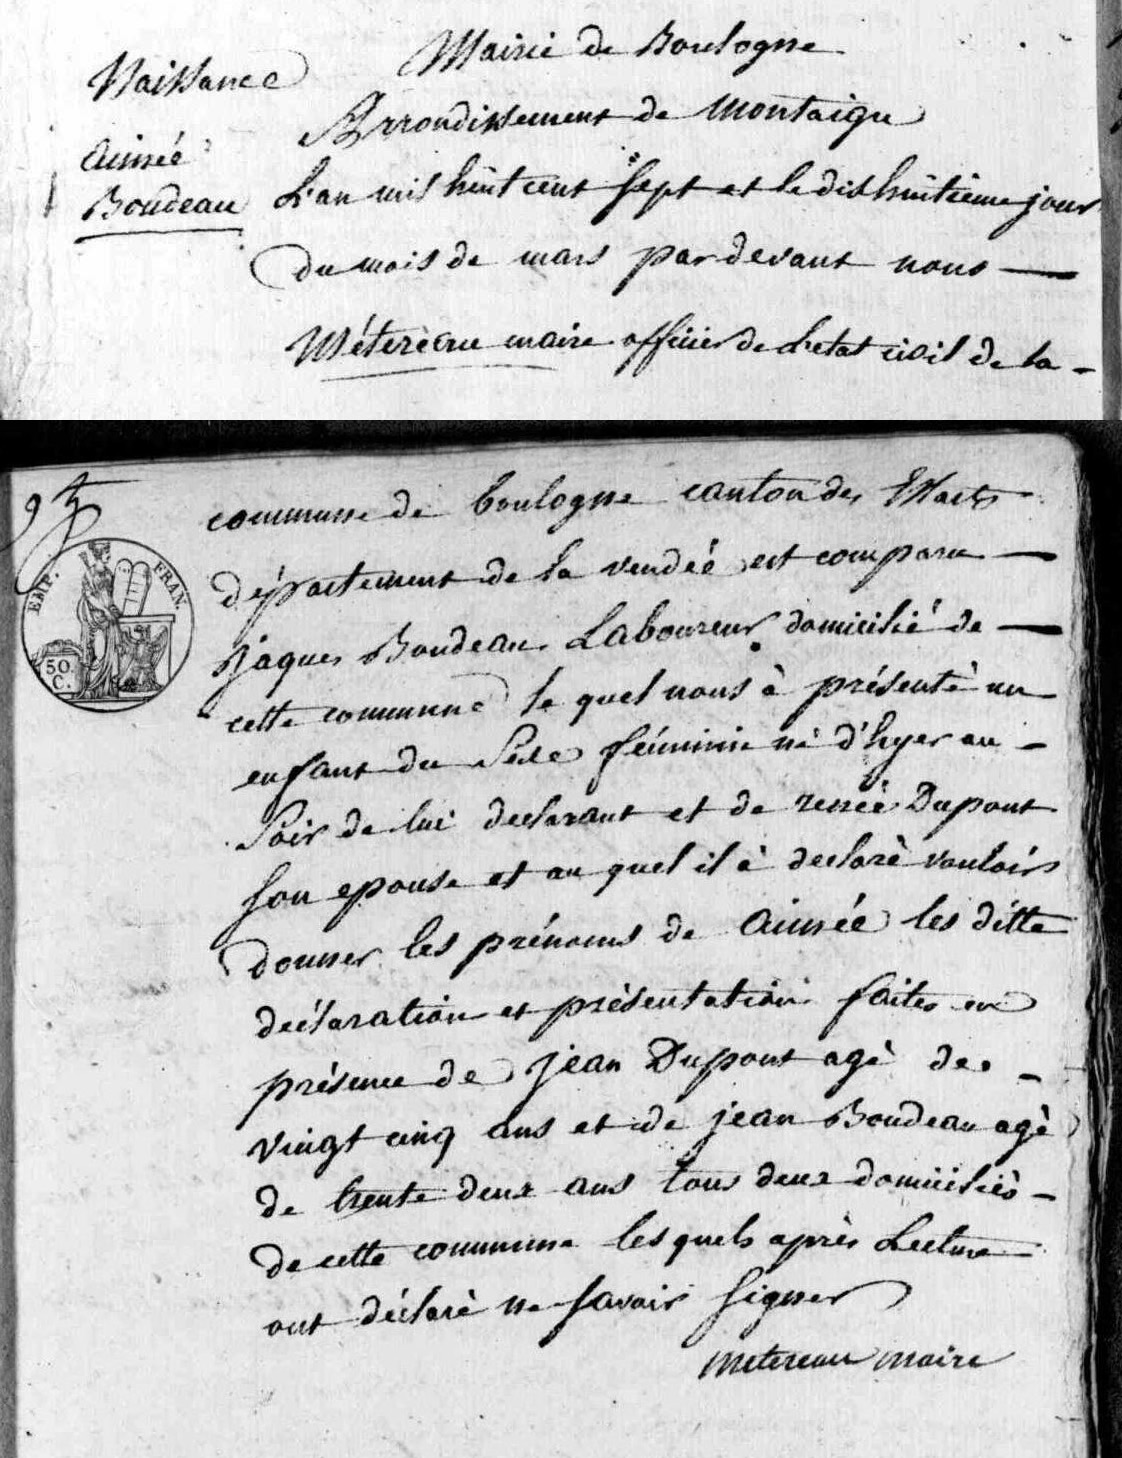 Naissance
Aimée
Boudeau
Mairie de Boulogne
Arrondissement de Montaigu
L'an mil huit cent sept et le dishuitieme jour
du mois de mars par devant nous
Métereau maire officier de L'etat civil de la
commune de boulogne canton des Essarts
département de la vendée est comparu
jaques Boudeau Laboureur domicilié de
cette commune le quel nous à présenté un
enfant du Sexe féminin né d'hyer au
Soir de lui declarant et de renée Dupont
son epouse et au quel il à declaré vouloir
donner les prénoms de Aimée les ditte
déclaration et présentation faites en
présence de jean Dupont agé de
vingt cinq ans et de jean Boudeau agé
de trente deux ans tous deux domiciliés
de cette commune les quels après Lecture
ont déclaré ne savoir signer
Metereau maire
EMP. FRAN.
50
C.